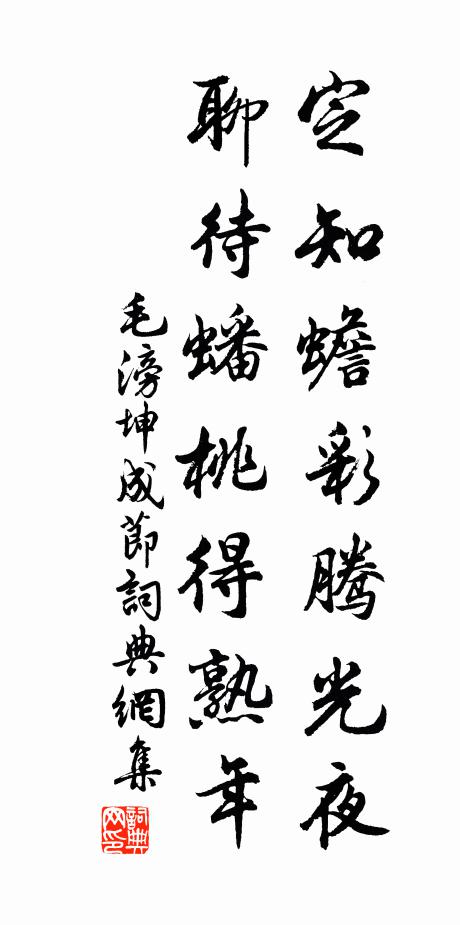 定知蟾彩騰光夜
聊待蟠桃得熟年
毛滂坤成節詞典網集
詞典网印